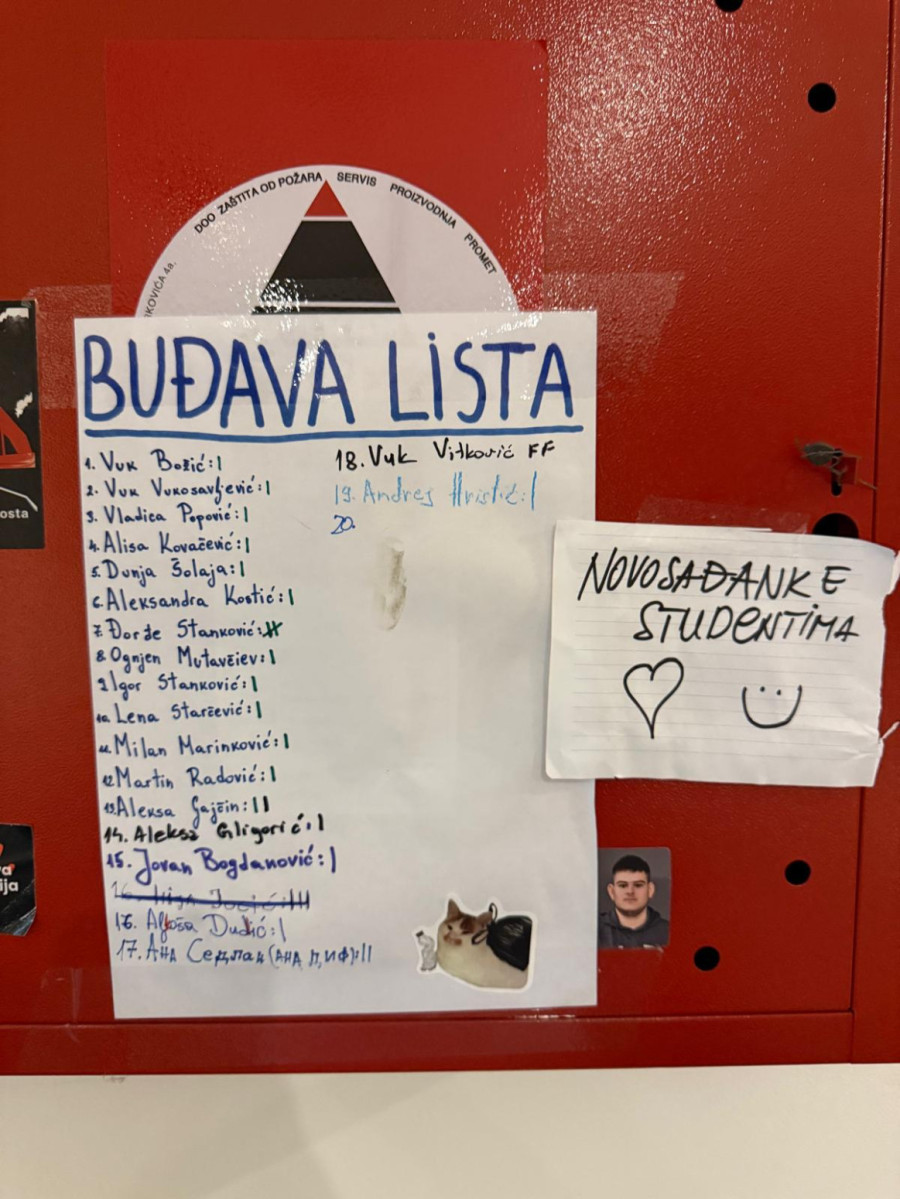 DOO ZAŠTITA OD POŽARA SERVIS PROIZVODNJA PROMET
KOVIĆA 4a.
BUĐAVA LISTA
1. Vuk Božić:|
2. Vuk Vukosavljević:|
3. Vladica Popović:|
4. Alisa Kovačević:|
5. Dunja Šolaja:|
6. Aleksandra Kostić:|
7. Đorđe Stanković:
8. Ognjen Mutavčiev:|
9. Igor Stanković:|
10. Lena Starčević:|
11. Milan Marinković:|
12. Martin Radović:|
13. Aleksa Gajčin:||
14. Aleksa Gligorić:|
15. Jovan Bogdanović:|
16.
16. Aljoša Dudić:|
17. Ана Седлак (АНА
18. Vuk Vitković FF
19. Andrej Hristić:|
20.
NOVOSAĐANKE
STUDENTIMA
osta
ija